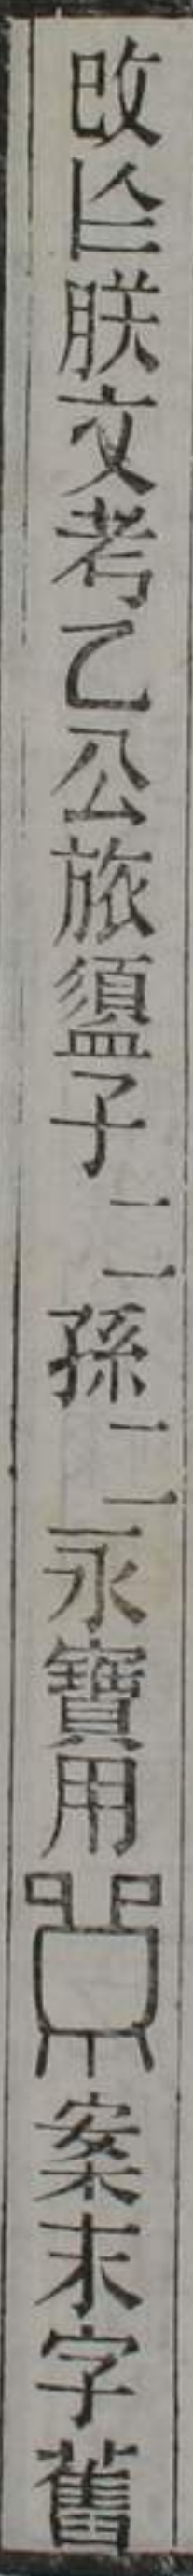 攺朕文考乙公旅盨子二孫二永寶用案末字舊